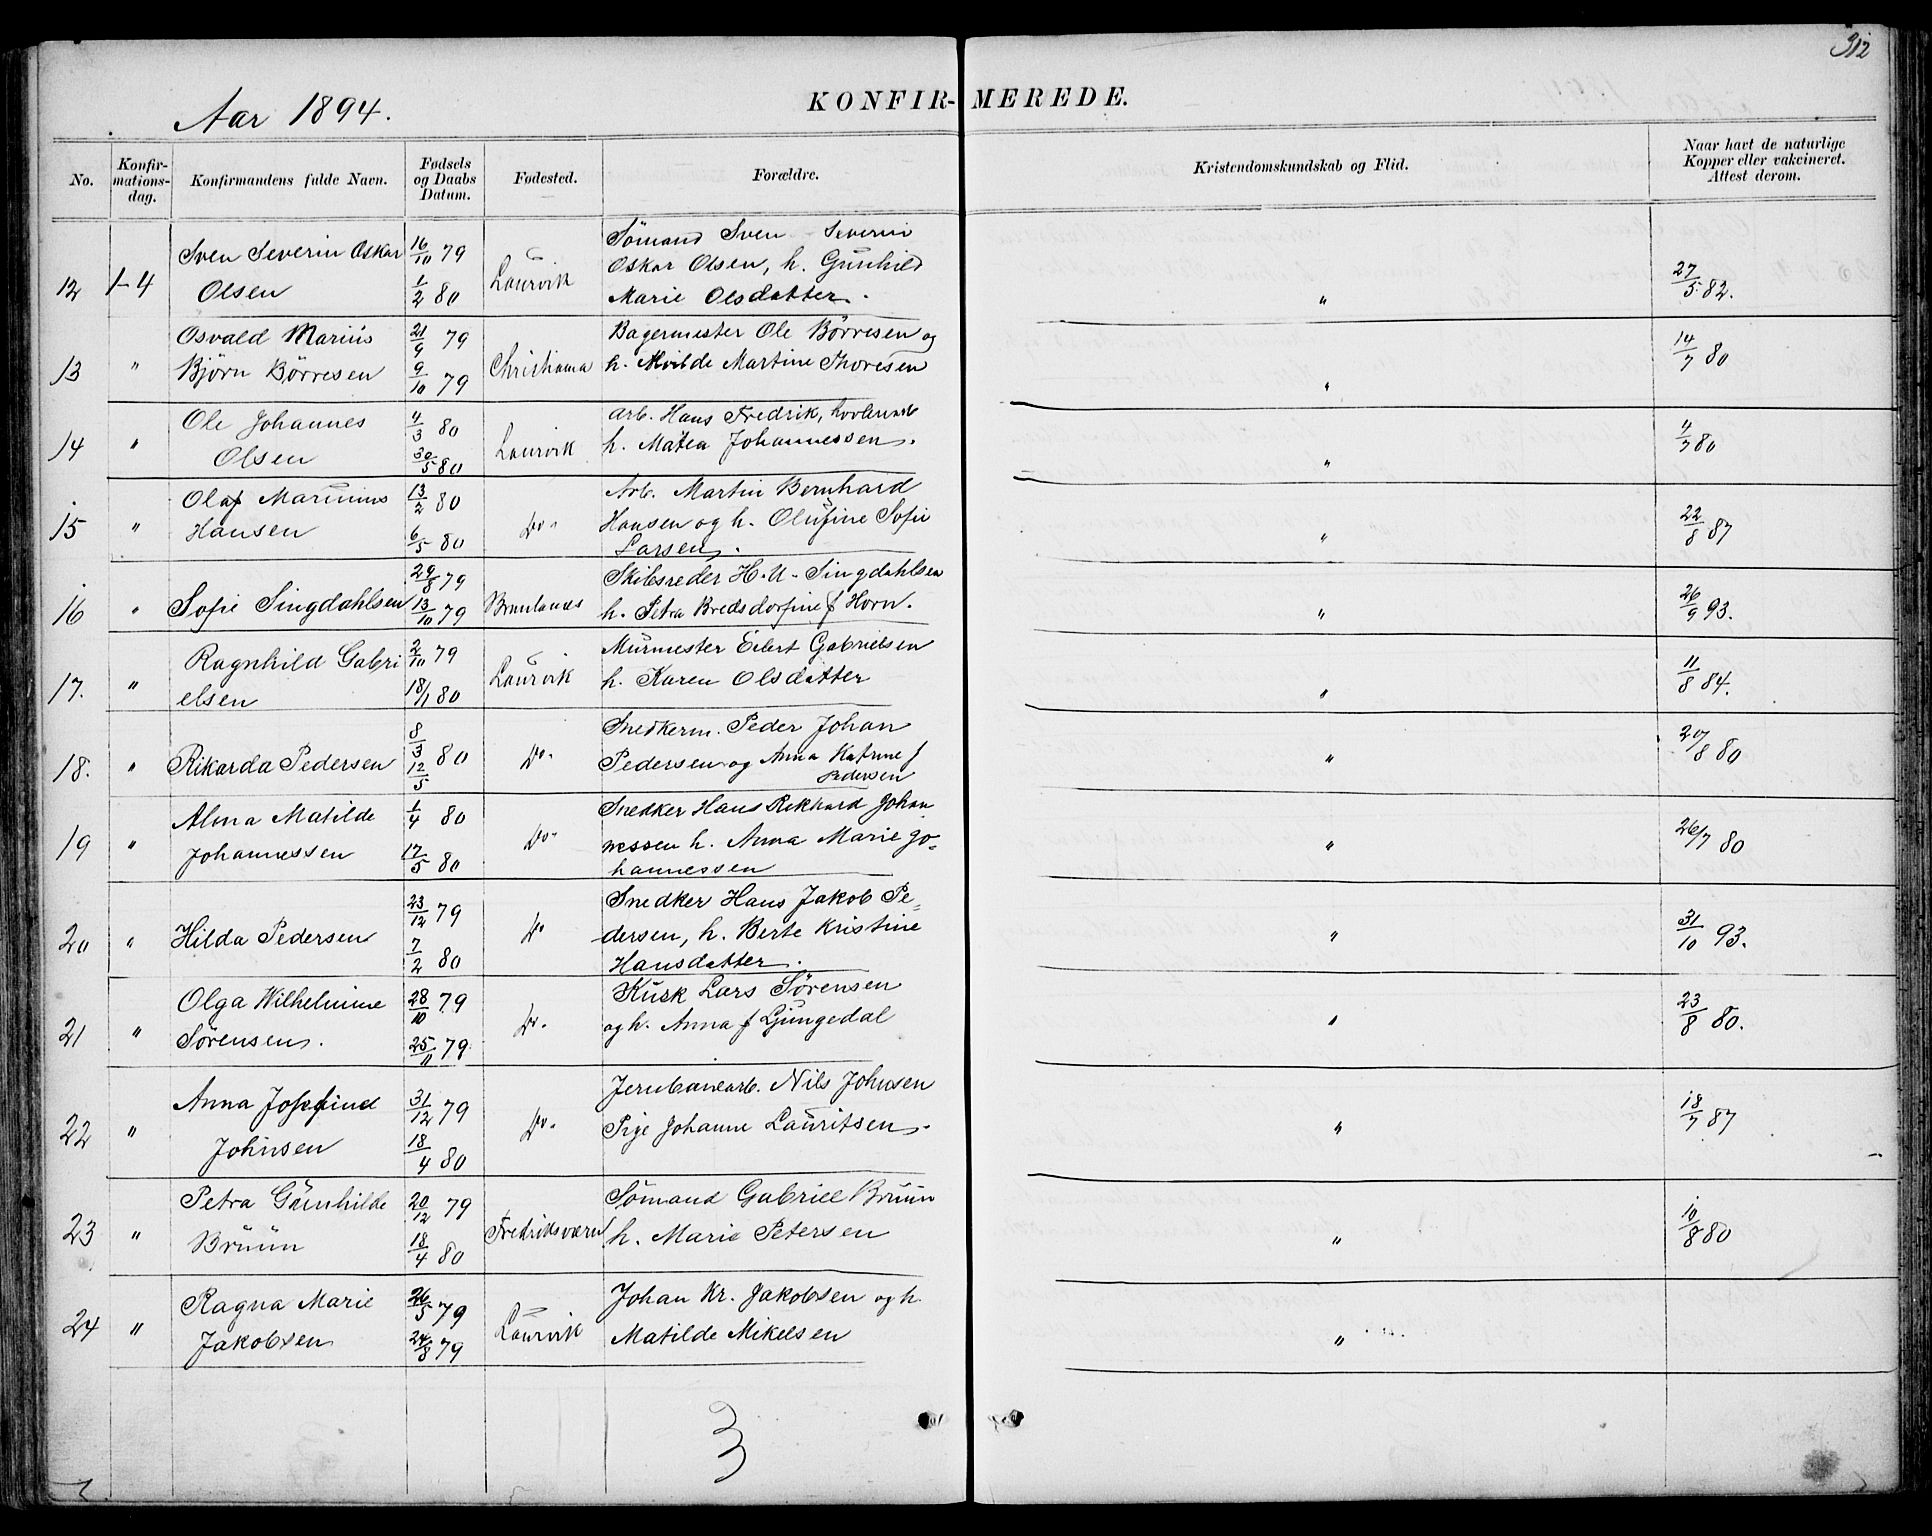 312
Aar 1894.
KONFIR-MEREDE.
No.
Konfir-
mations-
dag.
Konfirmandens fulde Navn.
Fødsels
og Daabs
Datum.
Fødested.
Forældre.
Kristendomskundskab og Flid.
Naar havt de naturlige
Kopper eller vakcineret.
Attest derom.
12 1-4 Sven Severin Oskar
Olsen
16/10 79
1/2 80
Laurvik
Sömand Sven Severin
Oskar Olsen, h. Gunhild
Marie Olsdatter.
" 27/5 82.
13 " Osvald Marius
Björn Börresen
21/9 79
9/10 79
Christiania
Bagermester Ole Börresen og
h. Martine Thoresen
" 14/7 80
14 " Ole Johannes
Olsen
4/3 80
30/5 80
Laurvik
Arb. Hans Fredrik,
h. Matea Johannessen.
" 4/7 80
15 " Olaf Marinius
Hansen
13/2 80
6/5 80
Do.
Arb. Martin Bernhard
Hansen og h. Olufine Sofie
Larsen.
" 22/8 87
16 " Sofie Singdahlsen
29/8 79
13/10 79
Brunlanes
Skibsreder H. U. Singdahlsen
h. Petra Bredsdorfine f Horn.
" 26/9 93.
17. " Ragnhild Gabri
elsen
2/10 79
18/1 80
Laurvik
Murmester Eilert Gabrielsen
h. Karen Olsdatter
" 11/8 84.
18. " Rikarda Pedersen
8/3 80
12/5
Do.
Snedkerm. Peder Johan
Pedersen og Anna Katrine f
Pedersen
" 20/8 80
19 " Alma Matilde
Johannessen
1/4 80
17/5 80
Do.
Snedker Hans Rikhard Johan
nessen h. Anna Marie Jo-
hannessen
" 26/7 80
20 " Hilda Pedersen
23/12 79
7/2 80
Do
Snedker Hans Jakob Pe-
dersen, h. Berte Kristine
Hansdatter.
" 31/10 93.
21 " Olga Wilhelmine
Sørensen.
28/10 79
25/11 79.
Do.
Kusk Lars Sørensen
og h. Anna f Ljungedal
" 23/8 80.
22 " Anna Josefine
Johnsen
31/12 79
18/4 80
Do.
Jernbanearb. Nils Johnsen
Pige Johanne Lauritsen.
" 18/7 87
23 " Petra Gunhilde
Bruun
20/12 79
18/4 80
Fredriksværn
Sømand Gabriel Bruun
h. Marie Petersen
" 10/8 80
24 " Ragna Marie
Jakobsen
26/5 79
24/8 79
Laurvik
Johan Kr. Jakobsen og h.
Matilde Mikelsen
"
3